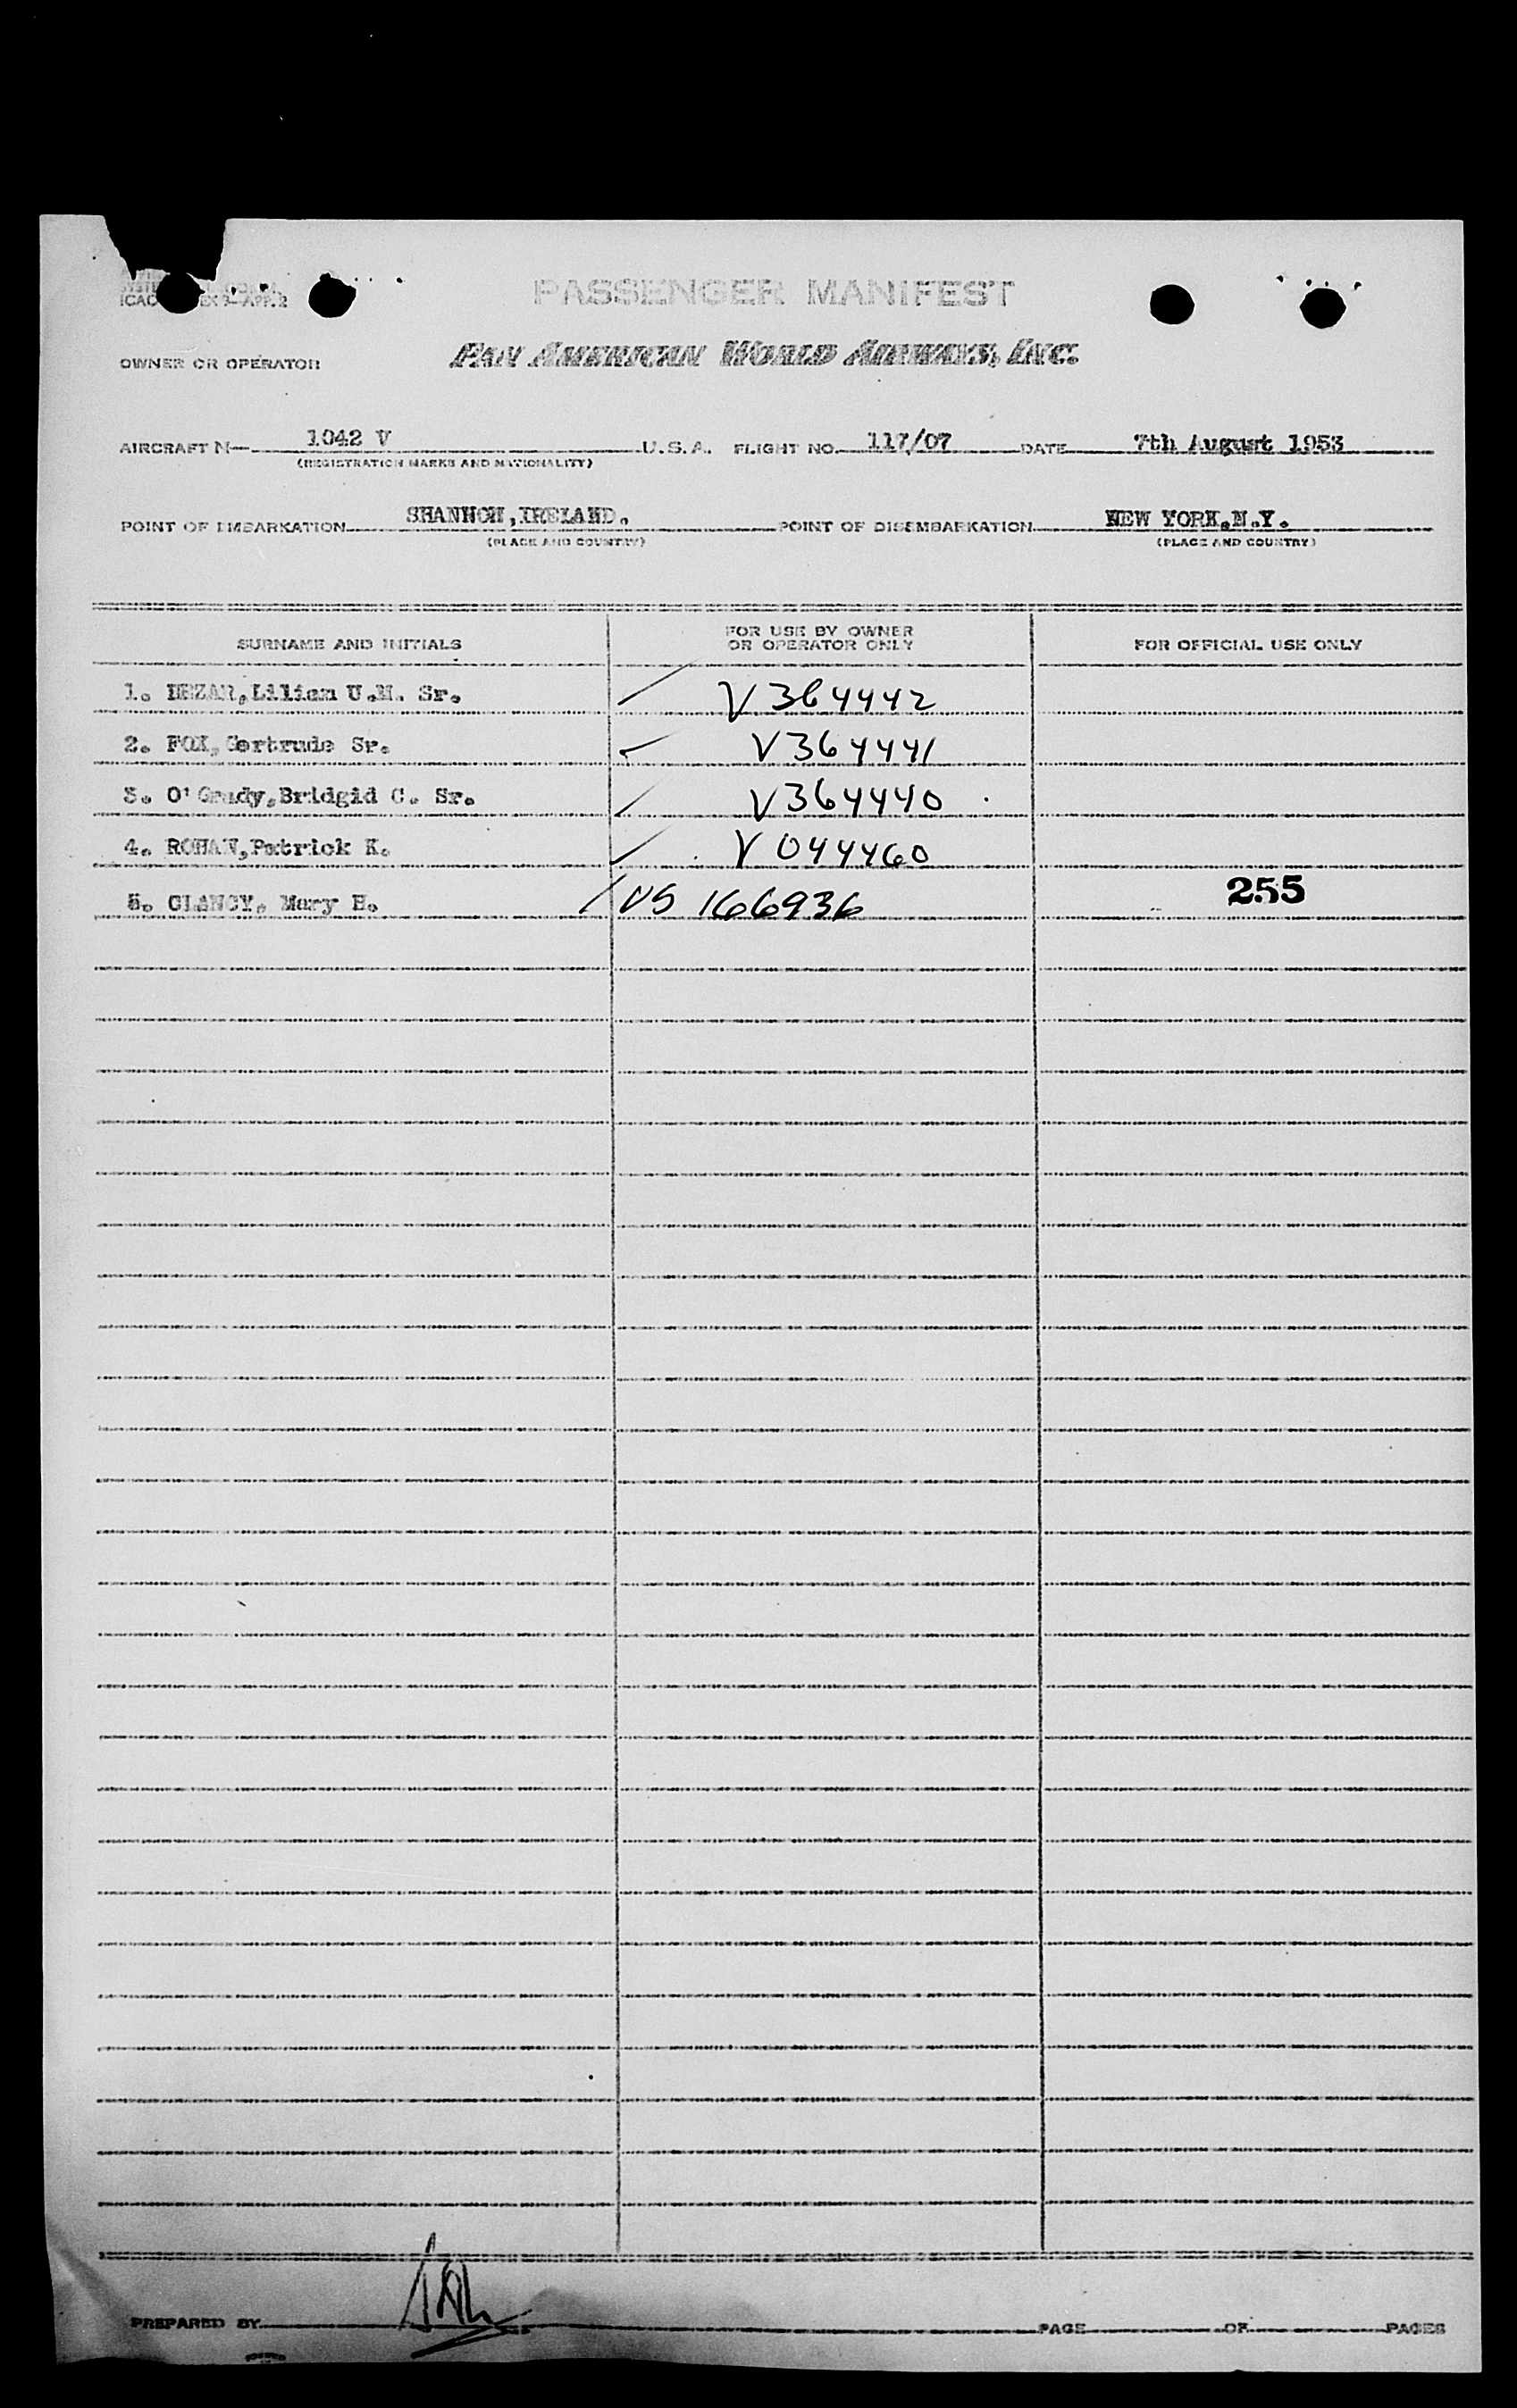 ICAO EX 9—APP. 2
PASSENGER MANIFEST
OWNER OR OPERATOR PAN AMERICAN WORLD AIRWAYS, INC.
AIRCRAFT N— 1042 V U.S.A. FLIGHT NO. 117/07 DATE 7th August 1953
(REGISTRATION MARKS AND NATIONALITY)
POINT OF EMBARKATION SHANNON,IRELAND. POINT OF DISEMBARKATION NEW YORK.N.Y.
(PLACE AND COUNTRY) (PLACE AND COUNTRY)
SURNAME AND INITIALS FOR USE BY OWNER OR OPERATOR ONLY FOR OFFICIAL USE ONLY
1. Lilian U.M. Sr. V364442
2. FOX,Gertrude Sr. V364441
3. O'Grady,Bridgid C. Sr. V364440
4. ROHAN,Patrick K. V044460
5. CLANCY, Mary E. VS 166936 255
PREPARED BY PAGE OF PAGES